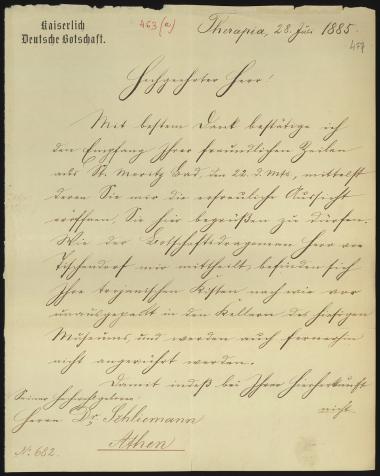 Kaiserlich
Deutsche Botschaft.
463 (a)
Therapia, 28. Juli 1885.
477
Hochgeehrter Herr!
Mit bestem Dank bestätige ich
den Empfang Ihrer freundlichen Zeilen
aus St. Moritz Bad, den 22. d. Mts, mittelst
deren Sie mir die erfreuliche Aussicht
eröffnen, Sie hier begrüßen zu dürfen.
Wie der Botschaftsdragoman Herr von
Tischendorf mir mittheilt, befinden sich
Ihre trojanischen Kisten nach wie vor
unausgepackt in den Kellern des hiesigen
Museums, und werden auch fernerhin
nicht angerührt werden.
Damit indeß bei Ihrer Hierherkunft
nicht
Seiner Hochwohlgeboren
Herrn Dr. Schliemann
Athen
No. 682.